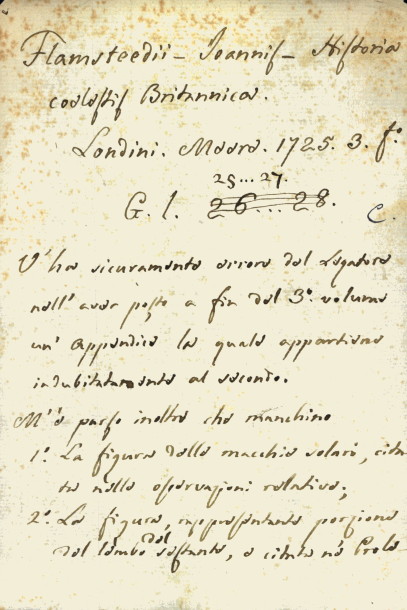 Flamsteedii – Joannis – Historia
coelestis Britannica.
Londini. Meere. 1725. 3. f.º
25 ... 27.
G. l. 26 ... 28. C.
V'ha sicuramente errore del Legatore
nell'aver posto a fin del 3º. volume
un'Appendice la quale appartiene
indubitatamente al secondo.
M'è parso inoltre che manchino
1º. La figura delle macchie solari, cita-
ta nelle osservazioni relative;
2º. La figura, rappresentante porzione
del lembo del sestante, e citata ne' Prole-